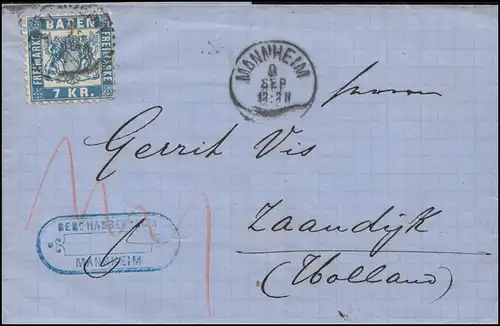 BADEN
FREIMARKE
FREIMARKE
7 KR.
MANNHEIM
9
SEP
Herrn
Gerrit Vis
Zaandijk
(Holland)
MANNHEIM